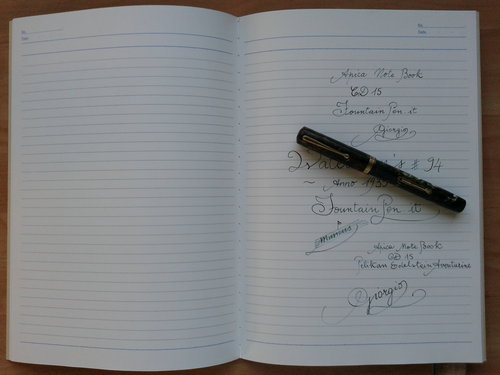 No.
Date
No.
Date
Apica Note Book
CD 15
FountainPen.it
Giorgio
's # 94
~ Anno 193
FountainPen.it
Apica Note Book
CD 15
Pelikan Edelstein Aventurine
Giorgio